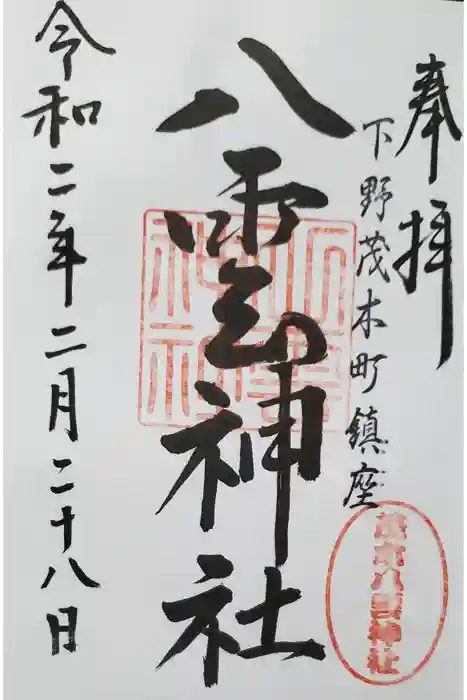 奉拝
下野茂木町鎮座
八雲神社
令和二年二月二十八日
茂木八雲神社
八雲神社